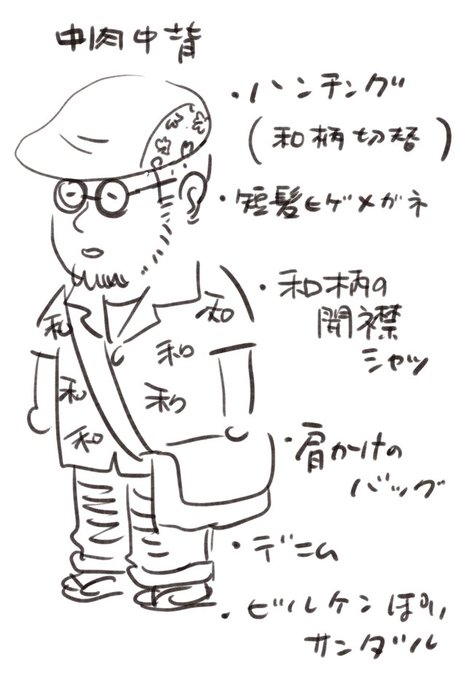 中肉中背
・ハンチング
(和柄切替)
・短髪ヒゲメガネ
・和柄の
開襟
シャツ
和
和
和
和
和
和
・肩かけの
バッグ
・デニム
・ビルケンぽい
サンダル